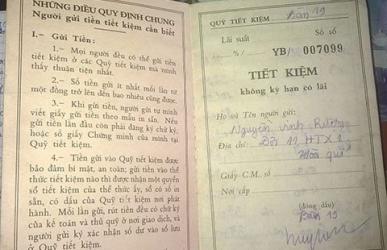 NHỮNG ĐIỀU QUY ĐỊNH CHUNG
Người gửi tiền tiết kiệm cần biết
I.- Gửi Tiền:
1.- Mọi người đều có thể gửi tiền
tiết kiệm ở các Quỹ tiết kiệm mà mình
thấy thuận tiện nhất.
2.- Số tiền gửi ít nhất mỗi lần từ
một đồng trở lên đến bao nhiêu cũng được.
3.- Khi gửi tiền, người gửi tự mình
viết giấy gửi tiền theo mẫu in sẵn. Nếu
gửi tiền lần đầu còn phải đăng ký chữ ký,
hoặc số giấy Chứng minh của mình tại
Quỹ tiết kiệm.
4.- Tiền gửi vào Quỹ tiết kiệm được
bảo đảm bí mật, an toàn; gửi tiền vào thể
thức tiết kiệm nào thì được nhận một quyển
sổ tiết kiệm của thể thức ấy, số có số in
sẵn, có dấu của Quỹ tiết kiệm nơi phát
hành. Mỗi lần gửi, rút tiền đều có chữ ký
của kế toán và thủ quỹ ở nơi giao dịch, và
người gửi ký xác nhận số dư vào sổ lưu
ở Quỹ tiết kiệm.
QUỸ TIẾT KIỆM
19
Lãi suất
Sổ số
% / YB/ 007099
TIẾT KIỆM
không kỳ hạn có lãi
Họ và Tên người gửi:
Nguyễn Vinh
Địa chỉ: Đội 12 HTX 1
Hòa quí
Giấy C.M. số
Nơi cấp
(đóng dấu)
19